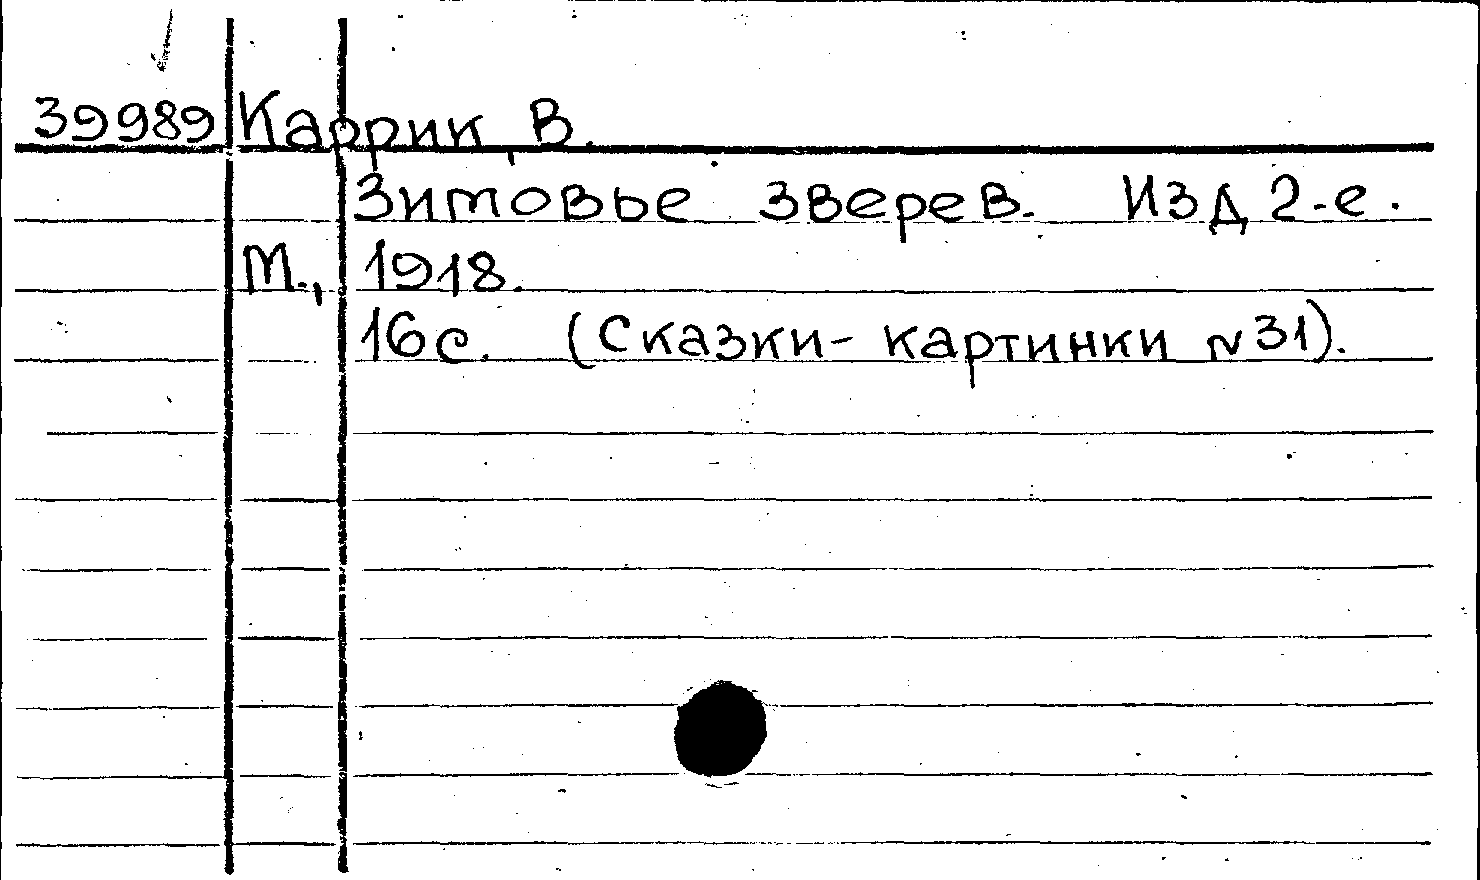 39989 Каррик, В.
Зимовье зверев. Изд 2-е.
М., 1918.
16с. (Сказки-картинки N31).